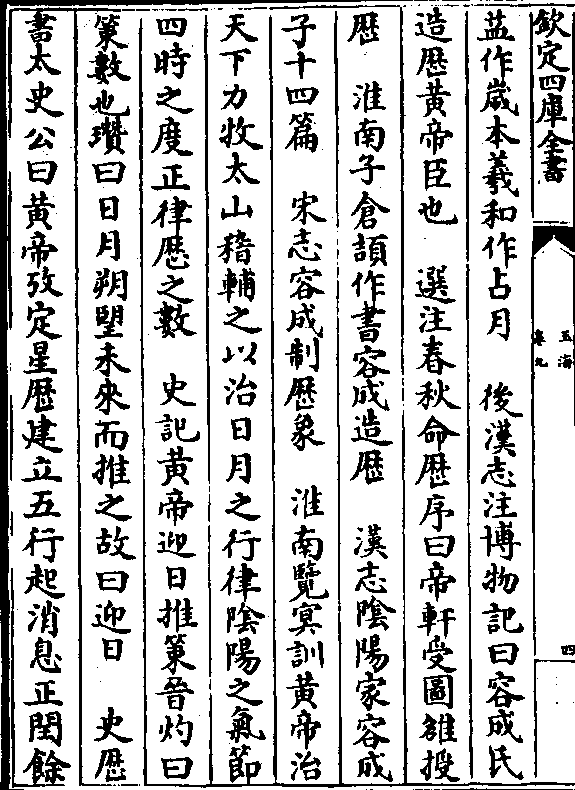 欽定四庫全書
玉海
卷九
四
益作歲本羲和作占月　後漢志注博物記曰容成氏
造歷黃帝臣也　選注春秋命歷序曰帝軒受圖雒授
歷　淮南子倉頡作書容成造歷　漢志陰陽家容成
子十四篇　宋志容成制歷象　淮南覽冥訓黃帝治
天下力牧太山稽輔之以治日月之行律陰陽之氣節
四時之度正律歷之數　史記黃帝迎日推策晉灼曰
策數也瓚曰日月朔朢未來而推之故曰迎日　史歷
書太史公曰黃帝攷定星歷建立五行起消息正閏餘